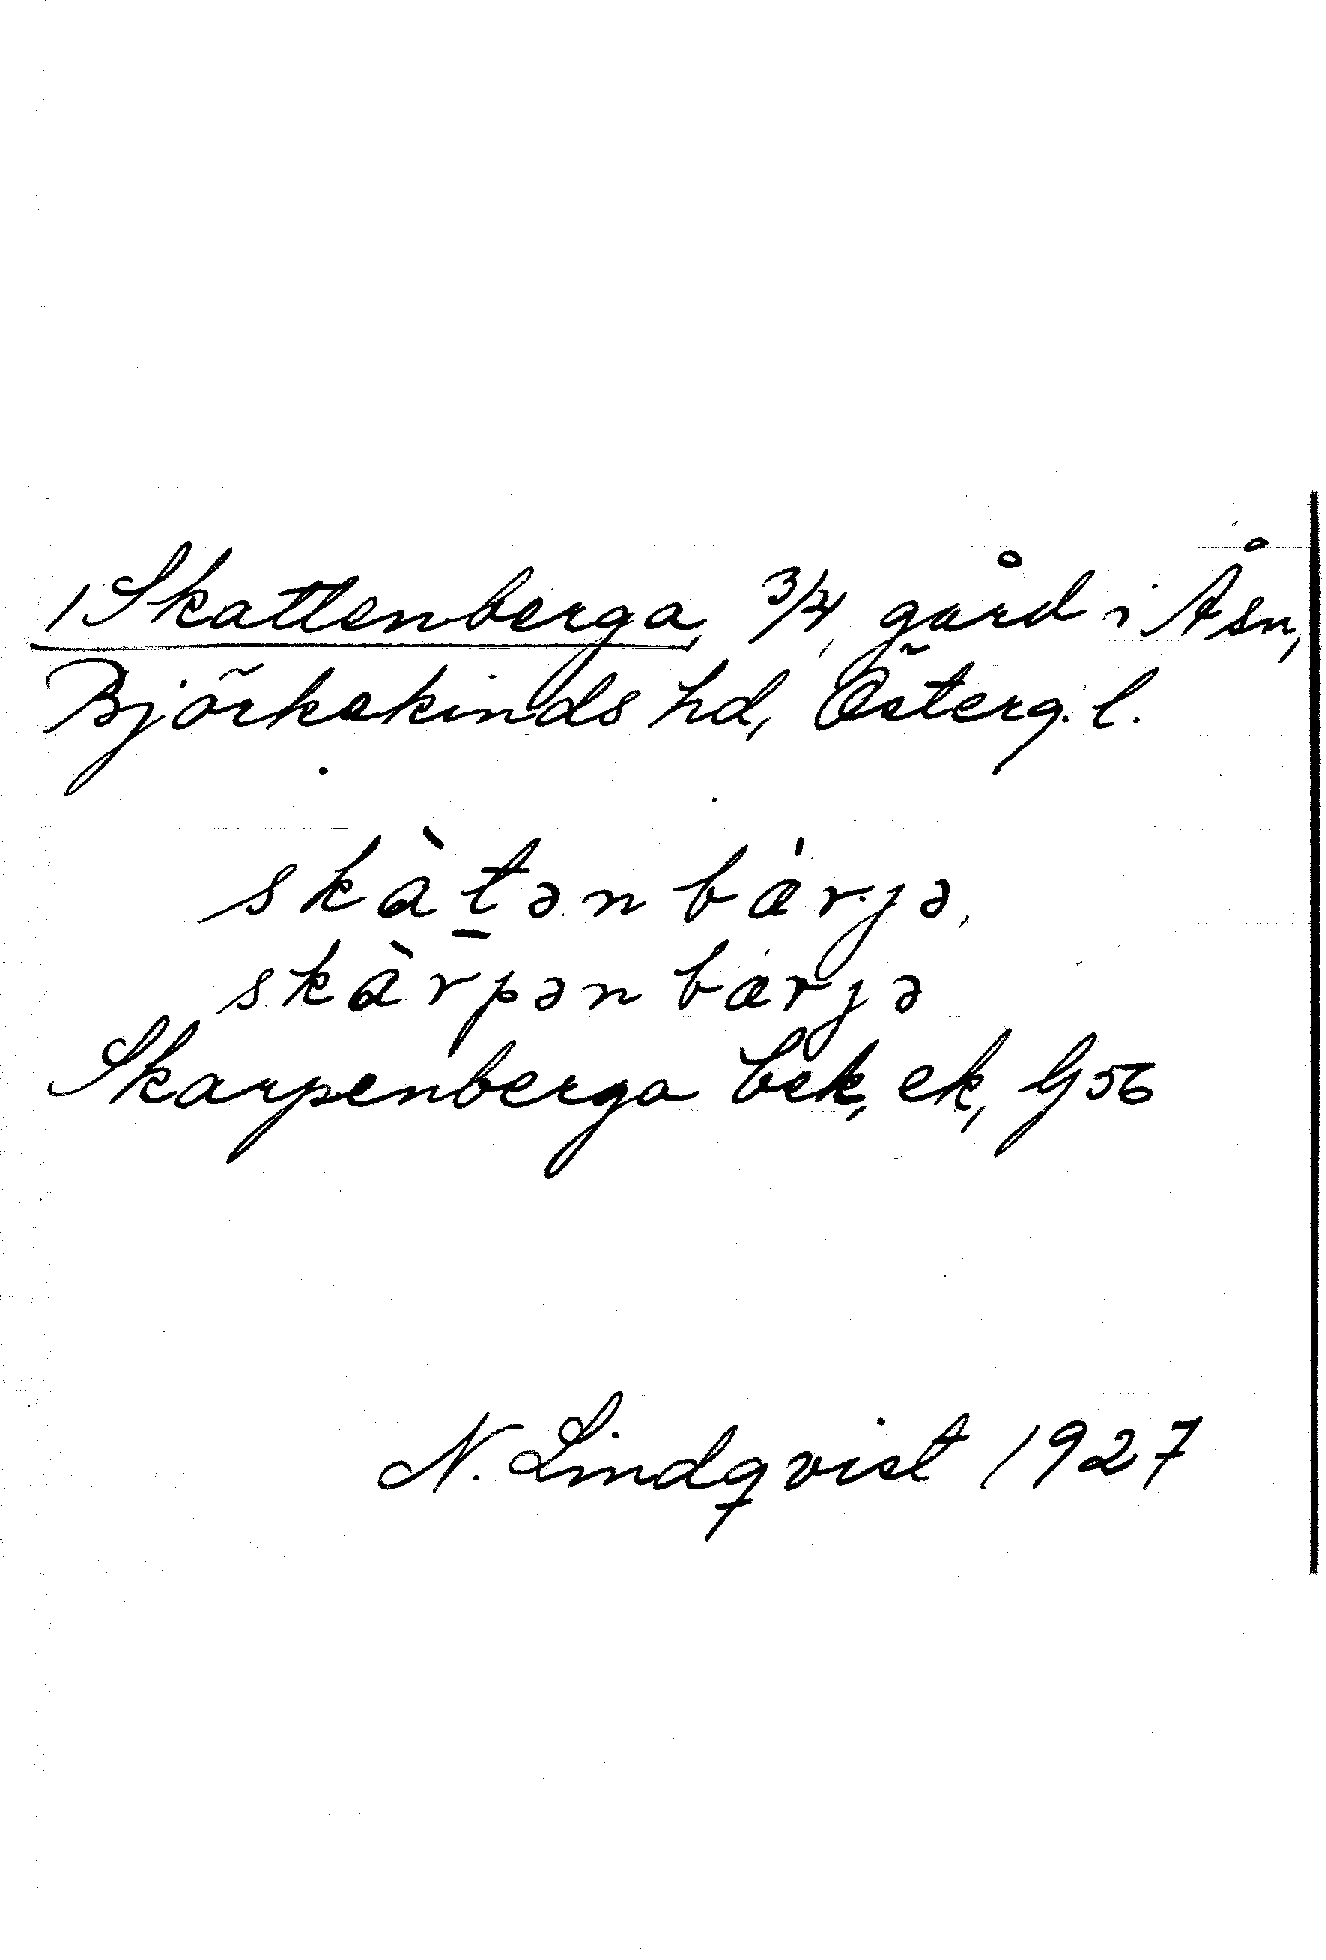 1 Skattenberga, 3/4, gård i Åsn,
Björkekinds hd, Österg. l.
skàt̲ən bǽrjə,
skàrpən bærjə
Skarpenberga bek, ek, G56
N. Lindqvist 1927